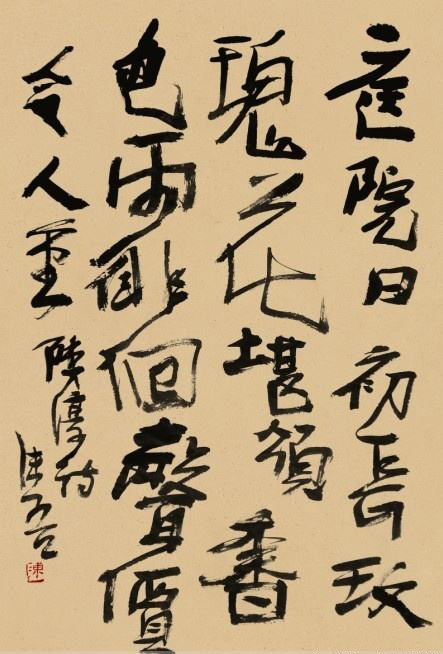 庭院日初長玫
瑰花堪頌香
色兩徘徊聲價
令人重
陳淳詩